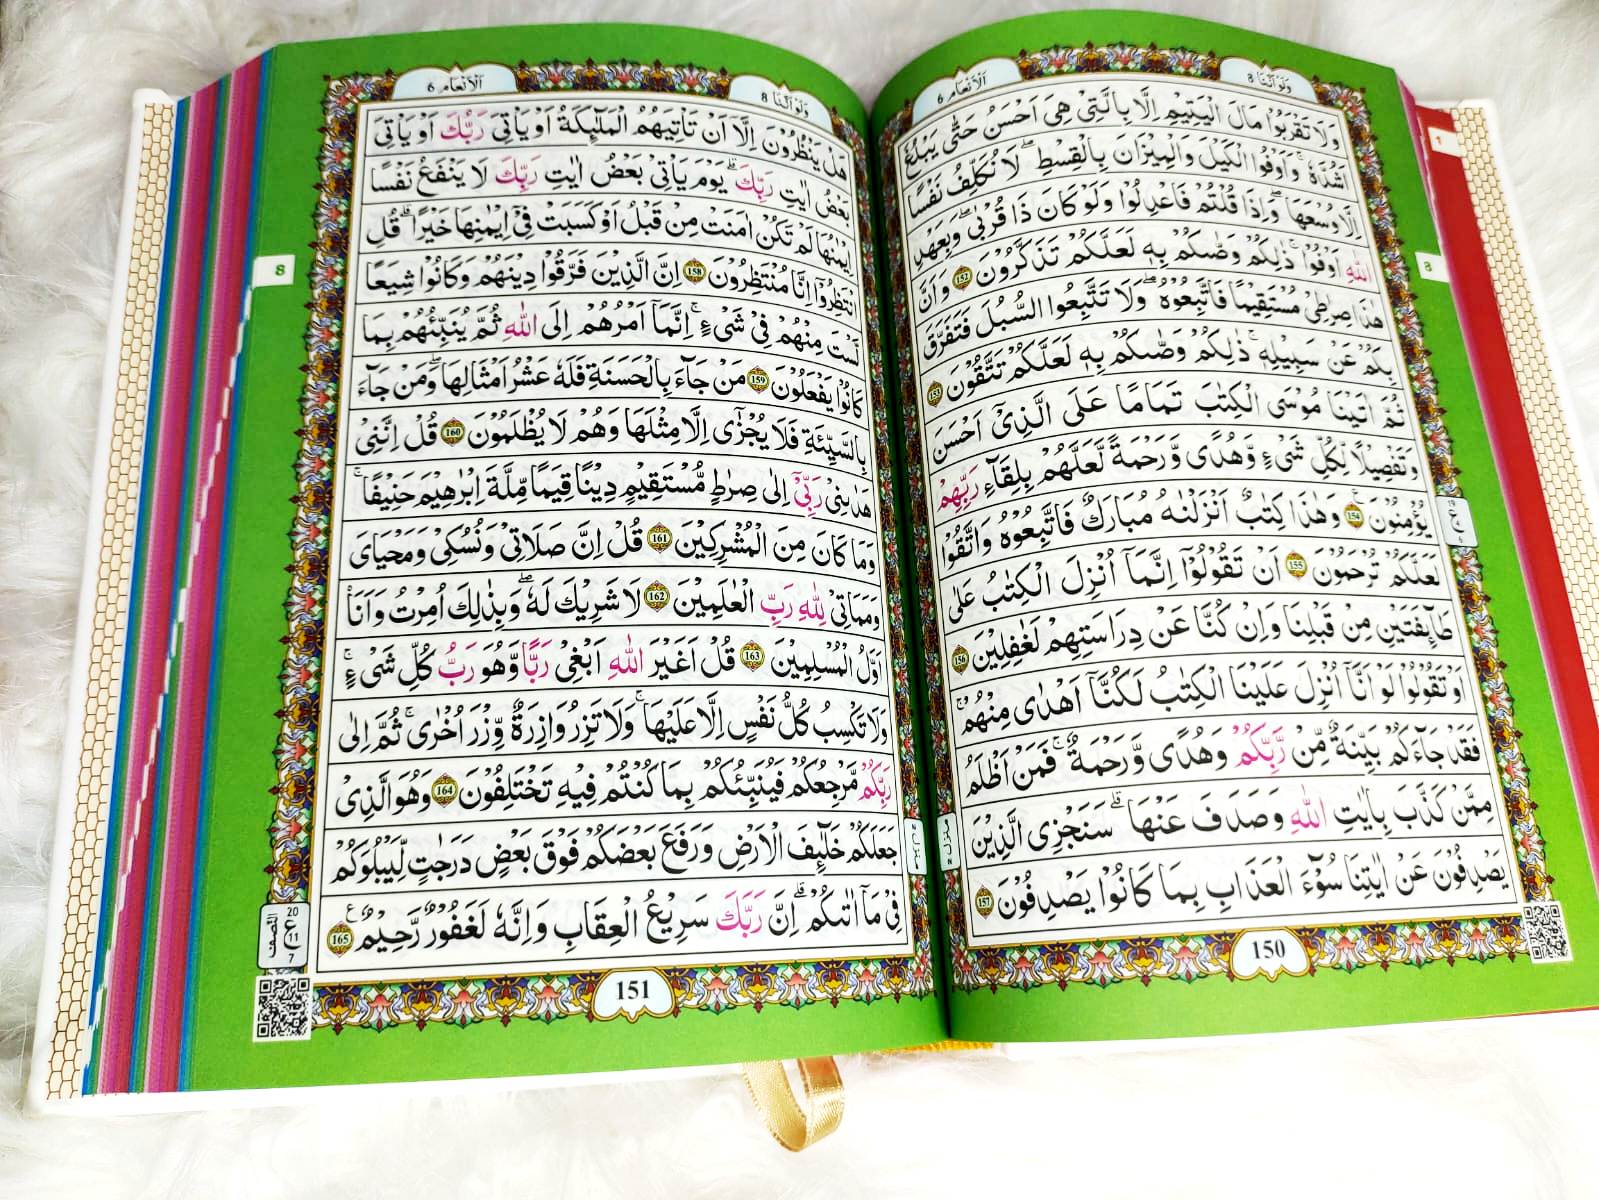 اَلْاَنْعَام 6
وَلَوْ اَنَّنَا 8
وَلَا تَقْرَبُوْا مَالَ الْيَتِيْمِ اِلَّا بِالَّتِىْ هِىَ اَحْسَنُ حَتّٰى يَبْلُغَ
اَشُدَّهٗ ۚ وَاَوْفُوا الْكَيْلَ وَالْمِيْزَانَ بِالْقِسْطِ ۖ لَا نُكَلِّفُ نَفْسًا
اِلَّا وُسْعَهَا ۖ وَاِذَا قُلْتُمْ فَاعْدِلُوْا وَلَوْ كَانَ ذَا قُرْبٰى ۖ وَبِعَهْدِ
اللّٰهِ اَوْفُوْا ۚ ذٰلِكُمْ وَصّٰىكُمْ بِهٖ لَعَلَّكُمْ تَذَكَّرُوْنَ 152 وَاَنَّ
هٰذَا صِرَاطِىْ مُسْتَقِيْمًا فَاتَّبِعُوْهُ ۖ وَلَا تَتَّبِعُوا السُّبُلَ فَتَفَرَّقَ
بِكُمْ عَنْ سَبِيْلِهٖ ۚ ذٰلِكُمْ وَصّٰىكُمْ بِهٖ لَعَلَّكُمْ تَتَّقُوْنَ 153
ثُمَّ اٰتَيْنَا مُوْسَى الْكِتٰبَ تَمَامًا عَلَى الَّذِىْ اَحْسَنَ
وَتَفْصِيْلًا لِّكُلِّ شَىْءٍ وَّهُدًى وَّرَحْمَةً لَّعَلَّهُمْ بِلِقَآءِ رَبِّهِمْ
يُؤْمِنُوْنَ 154 وَهٰذَا كِتٰبٌ اَنْزَلْنٰهُ مُبَارَكٌ فَاتَّبِعُوْهُ وَاتَّقُوْا
لَعَلَّكُمْ تُرْحَمُوْنَ 155 اَنْ تَقُوْلُوْٓا اِنَّمَآ اُنْزِلَ الْكِتٰبُ عَلٰى
طَآئِفَتَيْنِ مِنْ قَبْلِنَا وَاِنْ كُنَّا عَنْ دِرَاسَتِهِمْ لَغٰفِلِيْنَ 156
اَوْ تَقُوْلُوْا لَوْ اَنَّآ اُنْزِلَ عَلَيْنَا الْكِتٰبُ لَكُنَّآ اَهْدٰى مِنْهُمْ ۚ
فَقَدْ جَآءَكُمْ بَيِّنَةٌ مِّنْ رَّبِّكُمْ وَهُدًى وَّرَحْمَةٌ ۚ فَمَنْ اَظْلَمُ
مِمَّنْ كَذَّبَ بِاٰيٰتِ اللّٰهِ وَصَدَفَ عَنْهَا ۗ سَنَجْزِى الَّذِيْنَ
يَصْدِفُوْنَ عَنْ اٰيٰتِنَا سُوْٓءَ الْعَذَابِ بِمَا كَانُوْا يَصْدِفُوْنَ 157
150
8
اَلْاَنْعَام 6
وَلَوْ اَنَّنَا 8
هَلْ يَنْظُرُوْنَ اِلَّآ اَنْ تَاْتِيَهُمُ الْمَلٰٓئِكَةُ اَوْ يَاْتِىَ رَبُّكَ اَوْ يَاْتِىَ
بَعْضُ اٰيٰتِ رَبِّكَ ۗ يَوْمَ يَاْتِىْ بَعْضُ اٰيٰتِ رَبِّكَ لَا يَنْفَعُ نَفْسًا
اِيْمٰنُهَا لَمْ تَكُنْ اٰمَنَتْ مِنْ قَبْلُ اَوْ كَسَبَتْ فِىْٓ اِيْمٰنِهَا خَيْرًا ۗ قُلِ
انْتَظِرُوْٓا اِنَّا مُنْتَظِرُوْنَ 158 اِنَّ الَّذِيْنَ فَرَّقُوْا دِيْنَهُمْ وَكَانُوْا شِيَعًا
لَّسْتَ مِنْهُمْ فِىْ شَىْءٍ ۚ اِنَّمَآ اَمْرُهُمْ اِلَى اللّٰهِ ثُمَّ يُنَبِّئُهُمْ بِمَا
كَانُوْا يَفْعَلُوْنَ 159 مَنْ جَآءَ بِالْحَسَنَةِ فَلَهٗ عَشْرُ اَمْثَالِهَا ۖ وَمَنْ جَآءَ
بِالسَّيِّئَةِ فَلَا يُجْزٰٓى اِلَّا مِثْلَهَا وَهُمْ لَا يُظْلَمُوْنَ 160 قُلْ اِنَّنِىْ
هَدٰىنِىْ رَبِّىْٓ اِلٰى صِرٰطٍ مُّسْتَقِيْمٍ دِيْنًا قِيَمًا مِّلَّةَ اِبْرٰهِيْمَ حَنِيْفًا ۚ
وَمَا كَانَ مِنَ الْمُشْرِكِيْنَ 161 قُلْ اِنَّ صَلَاتِىْ وَنُسُكِىْ وَمَحْيَاىَ
وَمَمَاتِىْ لِلّٰهِ رَبِّ الْعٰلَمِيْنَ 162 لَا شَرِيْكَ لَهٗ ۖ وَبِذٰلِكَ اُمِرْتُ وَاَنَا
اَوَّلُ الْمُسْلِمِيْنَ 163 قُلْ اَغَيْرَ اللّٰهِ اَبْغِىْ رَبًّا وَّهُوَ رَبُّ كُلِّ شَىْءٍ ۚ
وَلَا تَكْسِبُ كُلُّ نَفْسٍ اِلَّا عَلَيْهَا ۚ وَلَا تَزِرُ وَازِرَةٌ وِّزْرَ اُخْرٰى ۚ ثُمَّ اِلٰى
رَبِّكُمْ مَّرْجِعُكُمْ فَيُنَبِّئُكُمْ بِمَا كُنْتُمْ فِيْهِ تَخْتَلِفُوْنَ 164 وَهُوَ الَّذِىْ
جَعَلَكُمْ خَلٰٓئِفَ الْاَرْضِ وَرَفَعَ بَعْضَكُمْ فَوْقَ بَعْضٍ دَرَجٰتٍ لِّيَبْلُوَكُمْ
فِىْ مَآ اٰتٰىكُمْ ۗ اِنَّ رَبَّكَ سَرِيْعُ الْعِقَابِ وَاِنَّهٗ لَغَفُوْرٌ رَّحِيْمٌ 165
النّصف
20
ع
11
7
151
8